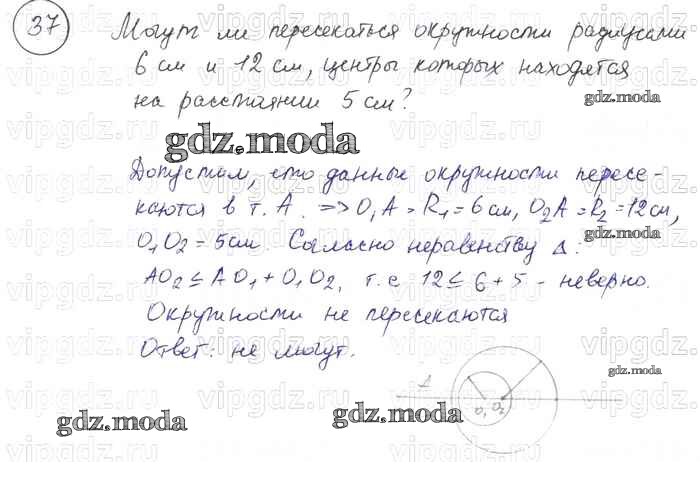 37 Могут ли пересекаться окружности радиусами
6 см и 12 см, центры которых находятся
на расстоянии 5 см?
gdz.moda
gdz.moda
Допустим, что данные окружности пересе-
каются в т. A. => O₁A = R₁ = 6 см, O₂A = R₂ = 12 см,
O₁O₂ = 5 см. Согласно неравенству Δ:
AO₂ ≤ AO₁ + O₁O₂, т.е 12 ≤ 6 + 5 - неверно.
Окружности не пересекаются
Ответ: не могут.
gdz.moda
A
O₁ O₂
gdz.moda
gdz.moda